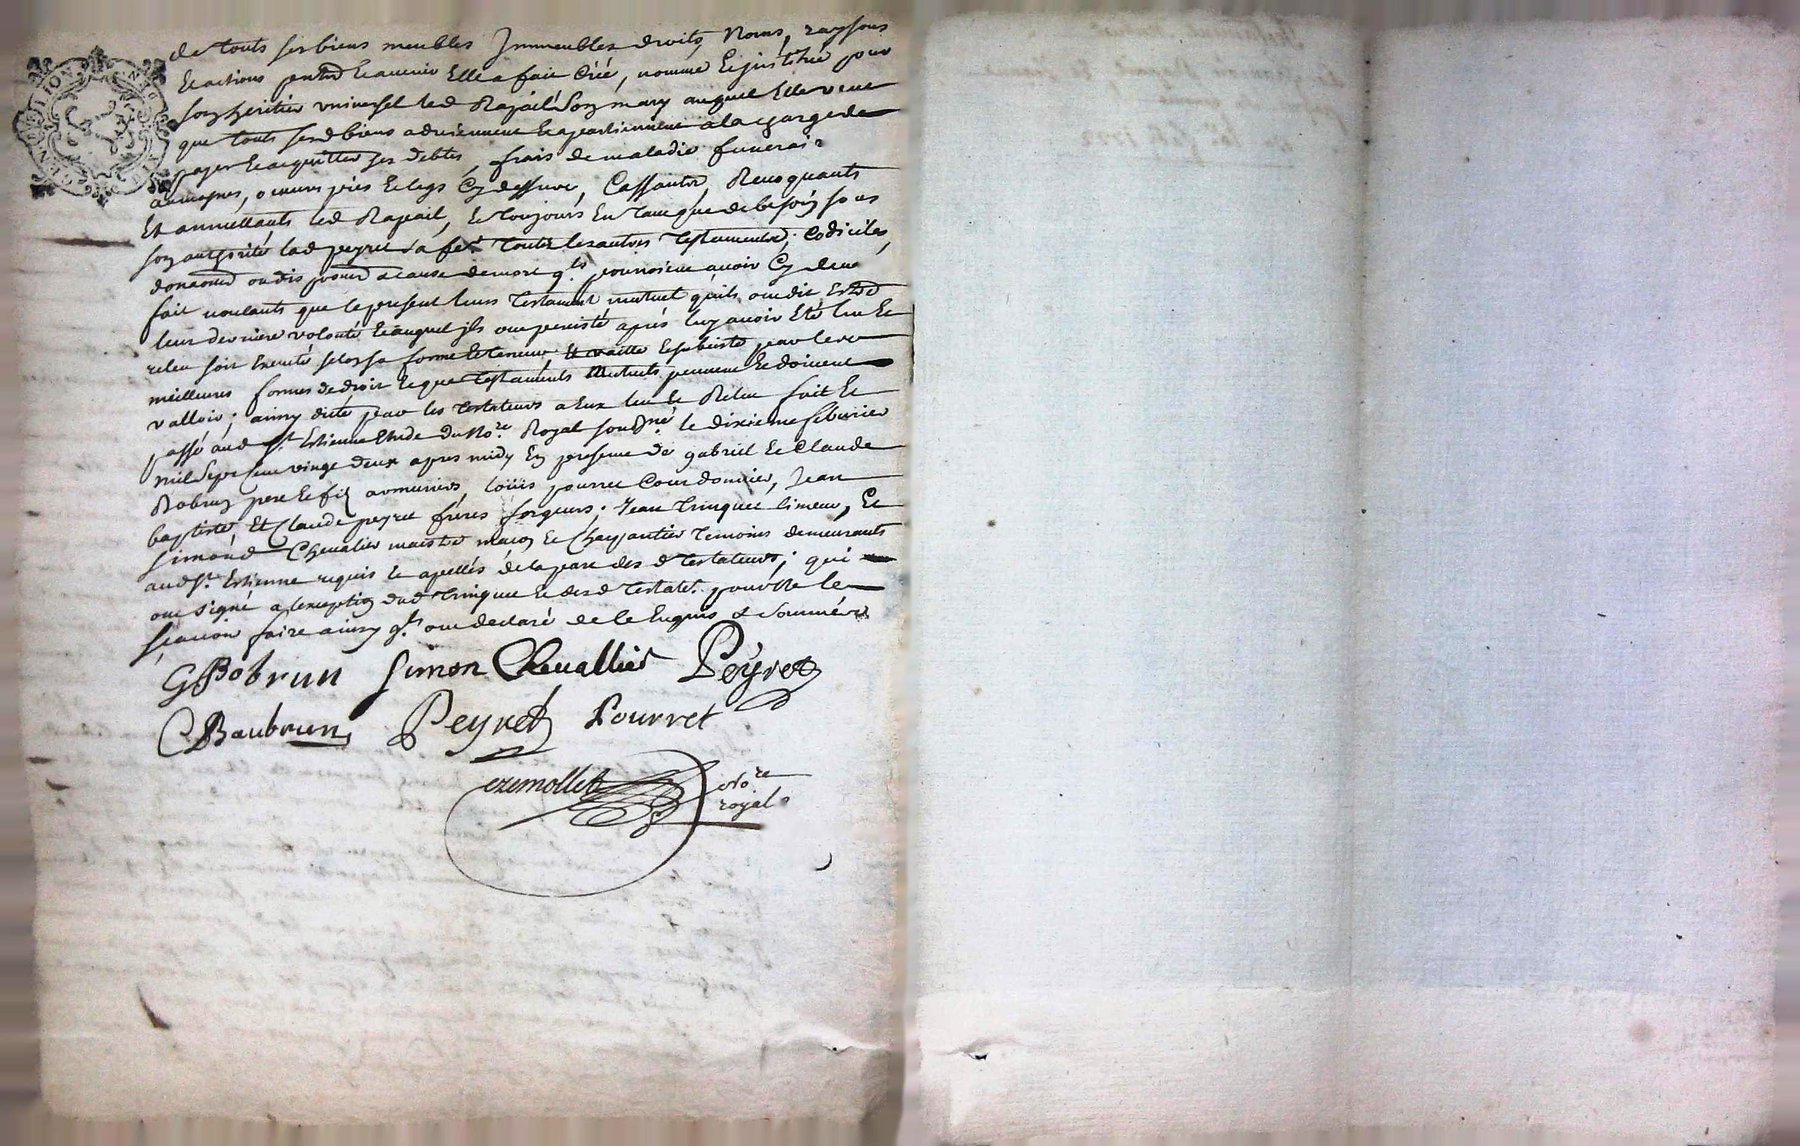 de touts ses biens meubles Immeubles droits, Noms, raysons
et actions et avenir Elle a fait Créé, nommé et institué pour
son heritier universel led Rapail son mary auquel Elle veut
que touts sesd biens adviennent et apartiennent a la charge de
payer et acquitter ses debtes, frais de maladie funerais
aumosnes, oeuvres pies et legs Cy dessus, Cassants, Revoquants
Et annullants led Rapail, et toujours En tant que de besoin sous
son authorité lad peyret sa fe. touts les autres Testaments, codiciles,
donaons ou disposons a cause de mort qls pourroient avoir Cy devt
fait voulants que le present leurs Testament mutuel quils ont dit Estre
leur derniere volonté et auquel ils ont persisté aprés luy avoir Eté leu Et
releu soit Executé selon sa forme et teneur, Et vaille et subsiste par les
meilleures formes de droit et que testaments Mutuels peuvent et doivent
valloir; ainsy dicté par les testateurs a Eux leu et Releu fait et
passé aud St. Estienne Etude du No.re Royal soussné le dixieme febvrier
mil sept cent vingt deux apres midy En presence de gabriel et Claude
Bobrun pere et fils armuriers, loüis pourret Courdonnier, Jean
baptiste Et Claude peyret fréres forgeurs; Jean trinquet limeur, Et
Simond Chevalier maistre maçon et Charpantier temoins demeurants
aud St. Estienne requis et apellés de la part des d testateurs; qui
ont signé a l'exception dud trinquet et desd testats. pour ne le
scavoir faire ainsy qls ont declaré de le Enquis & sommés
GBobrun Simon Chevallier Peyret
CBaubrun Peyret Pourret
ezemollet No.re
royal